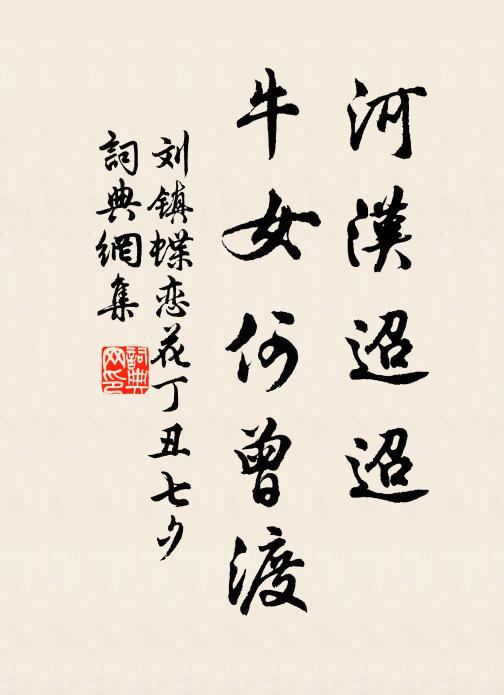 河漢迢迢
牛女何曾渡
刘镇蝶恋花丁丑七夕
詞典網集
詞典网印